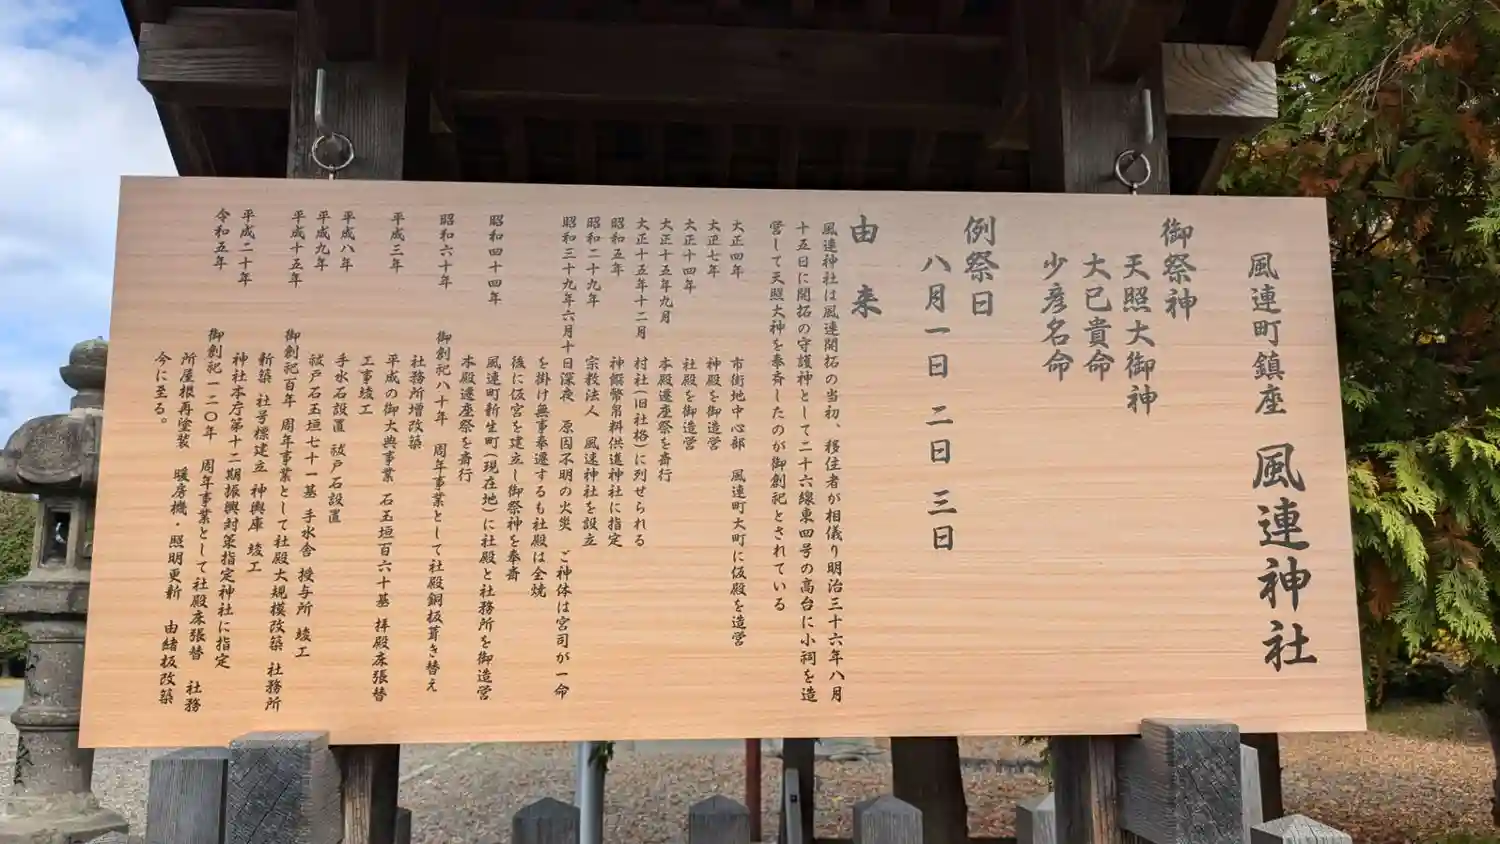 風連町鎮座　風連神社
御祭神
天照大御神
大已貴命
少彦名命
例祭日
八月一日　二日　三日
由来
風連神社は風連開拓の当初、移住者が相儀り明治三十六年八月
十五日に開拓の守護神として二十六線東四号の高台に小祠を造
営して天照大神を奉斎したのが御創祀とされている
大正四年　市街地中心部　風連町大町に仮殿を造営
大正七年　神殿を御造営
大正十四年　社殿を御造営
大正十五年九月　本殿遷座祭を斎行
大正十五年十二月　村社(旧社格)に列せられる
昭和五年　神饌幣帛料供進神社に指定
昭和二十九年　宗教法人　風連神社を設立
昭和三十九年六月十日深夜　原因不明の火災　ご神体は宮司が一命
を掛け無事奉遷するも社殿は全焼
後に仮宮を建立し御祭神を奉斎
昭和四十四年　風連町新生町(現在地)に社殿と社務所を御造営
本殿遷座祭を斎行
昭和六十年　御創祀八十年　周年事業として社殿銅板葺き替え
社務所増改築
平成三年　平成の御大典事業　石玉垣百六十基 拝殿床張替
工事竣工
平成八年　手水石設置　祓戸石設置
平成九年　祓戸石玉垣七十一基 手水舎　授与所　竣工
平成十五年　御創祀百年　周年事業として社殿大規模改築　社務所
新築　社号標建立　神輿庫　竣工
平成二十年　神社本庁第十二期振興対策指定神社に指定
令和五年　御創祀一二〇年　周年事業として社殿床張替　社務
所屋根再塗装　暖房機・照明更新　由緒板改築
今に至る。